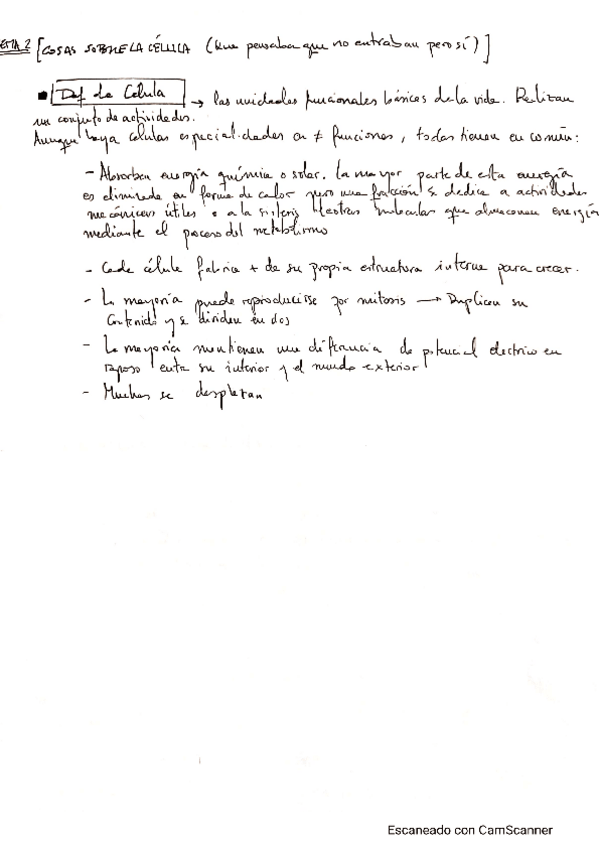 TEMA 2 [COSAS SOBRE LA CÉLULA (Que pensaba que no entraban pero sí)]
Def de Célula → las unidades funcionales básicas de la vida. Realizan
un conjunto de actividades.
Aunque haya células especializadas en ≠ funciones, todas tienen en común:
- Absorben energía química o solar. La mayor parte de esta energía
es eliminada en forma de calor pero una fracción se dedica a actividades
mecánicas útiles o a la síntesis moléculas que almacenan energía
mediante el proceso del metabolismo
- Cada célula fabrica + de su propia estructura interna para crecer.
- La mayoría puede reproducirse por mitosis → Duplican su
contenido y se dividen en dos
- La mayoría mantienen una diferencia de potencial eléctrico en
reposo entre su interior y el mundo exterior
- Muchas se desplazan
Escaneado con CamScanner